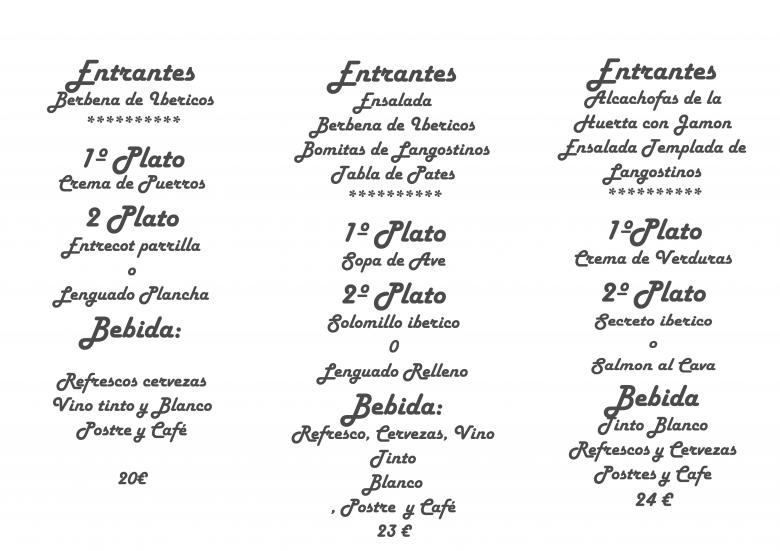 Entrantes
Berbena de Ibericos
**********
1º Plato
Crema de Puerros
2 Plato
Entrecot parrilla
o
Lenguado Plancha
Bebida:
Refrescos cervezas
Vino tinto y Blanco
Postre y Café
20€
Entrantes
Ensalada
Berbena de Ibericos
Bomitas de Langostinos
Tabla de Pates
**********
1º Plato
Sopa de Ave
2º Plato
Solomillo iberico
O
Lenguado Relleno
Bebida:
Refresco, Cervezas, Vino
Tinto
Blanco
, Postre y Café
23 €
Entrantes
Alcachofas de la
Huerta con Jamon
Ensalada Templada de
Langostinos
**********
1ºPlato
Crema de Verduras
2º Plato
Secreto iberico
o
Salmon al Cava
Bebida
Tinto Blanco
Refrescos y Cervezas
Postres y Cafe
24 €